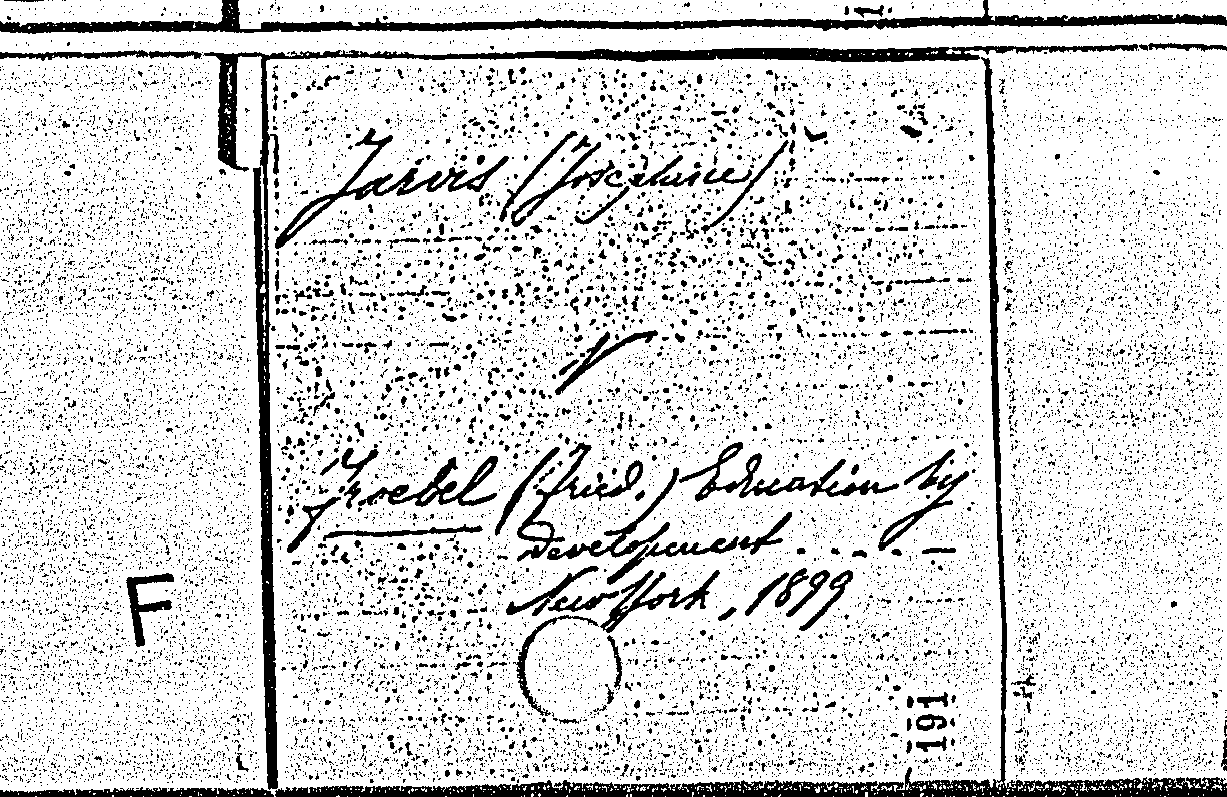 Jarvis (Josephine)
Froebel (Fried.) Education by
Development
New York, 1899
F
191